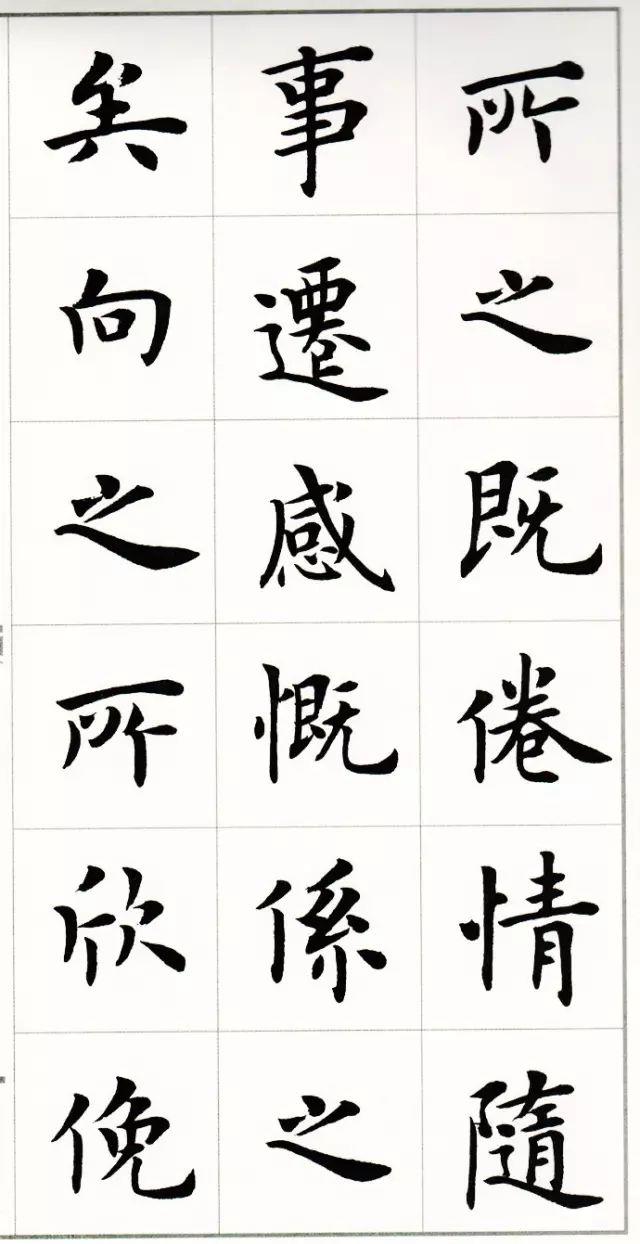 所之既倦情隨
事遷感慨係之
矣向之所欣俛